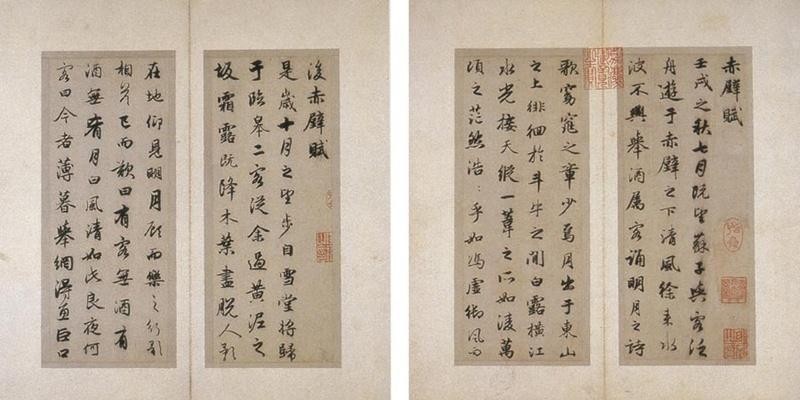 赤壁賦
壬戌之秋七月既望蘇子與客泛
舟遊于赤壁之下清風徐來水
波不興舉酒屬客誦明月之詩
歌窈窕之章少焉月出于東山
之上徘徊於斗牛之間白露橫江
水光接天縱一葦之所如凌萬
頃之茫然浩〻乎如馮虛御風而
後赤壁賦
是歲十月之望步自雪堂將歸
于臨皋二客從余過黃泥之
坂霜露既降木葉盡脫人影
在地仰見明月顧而樂之行歌
相答已而歎曰有客無酒有
酒無肴月白風清如此良夜何
客曰今者薄暮舉網得魚巨口